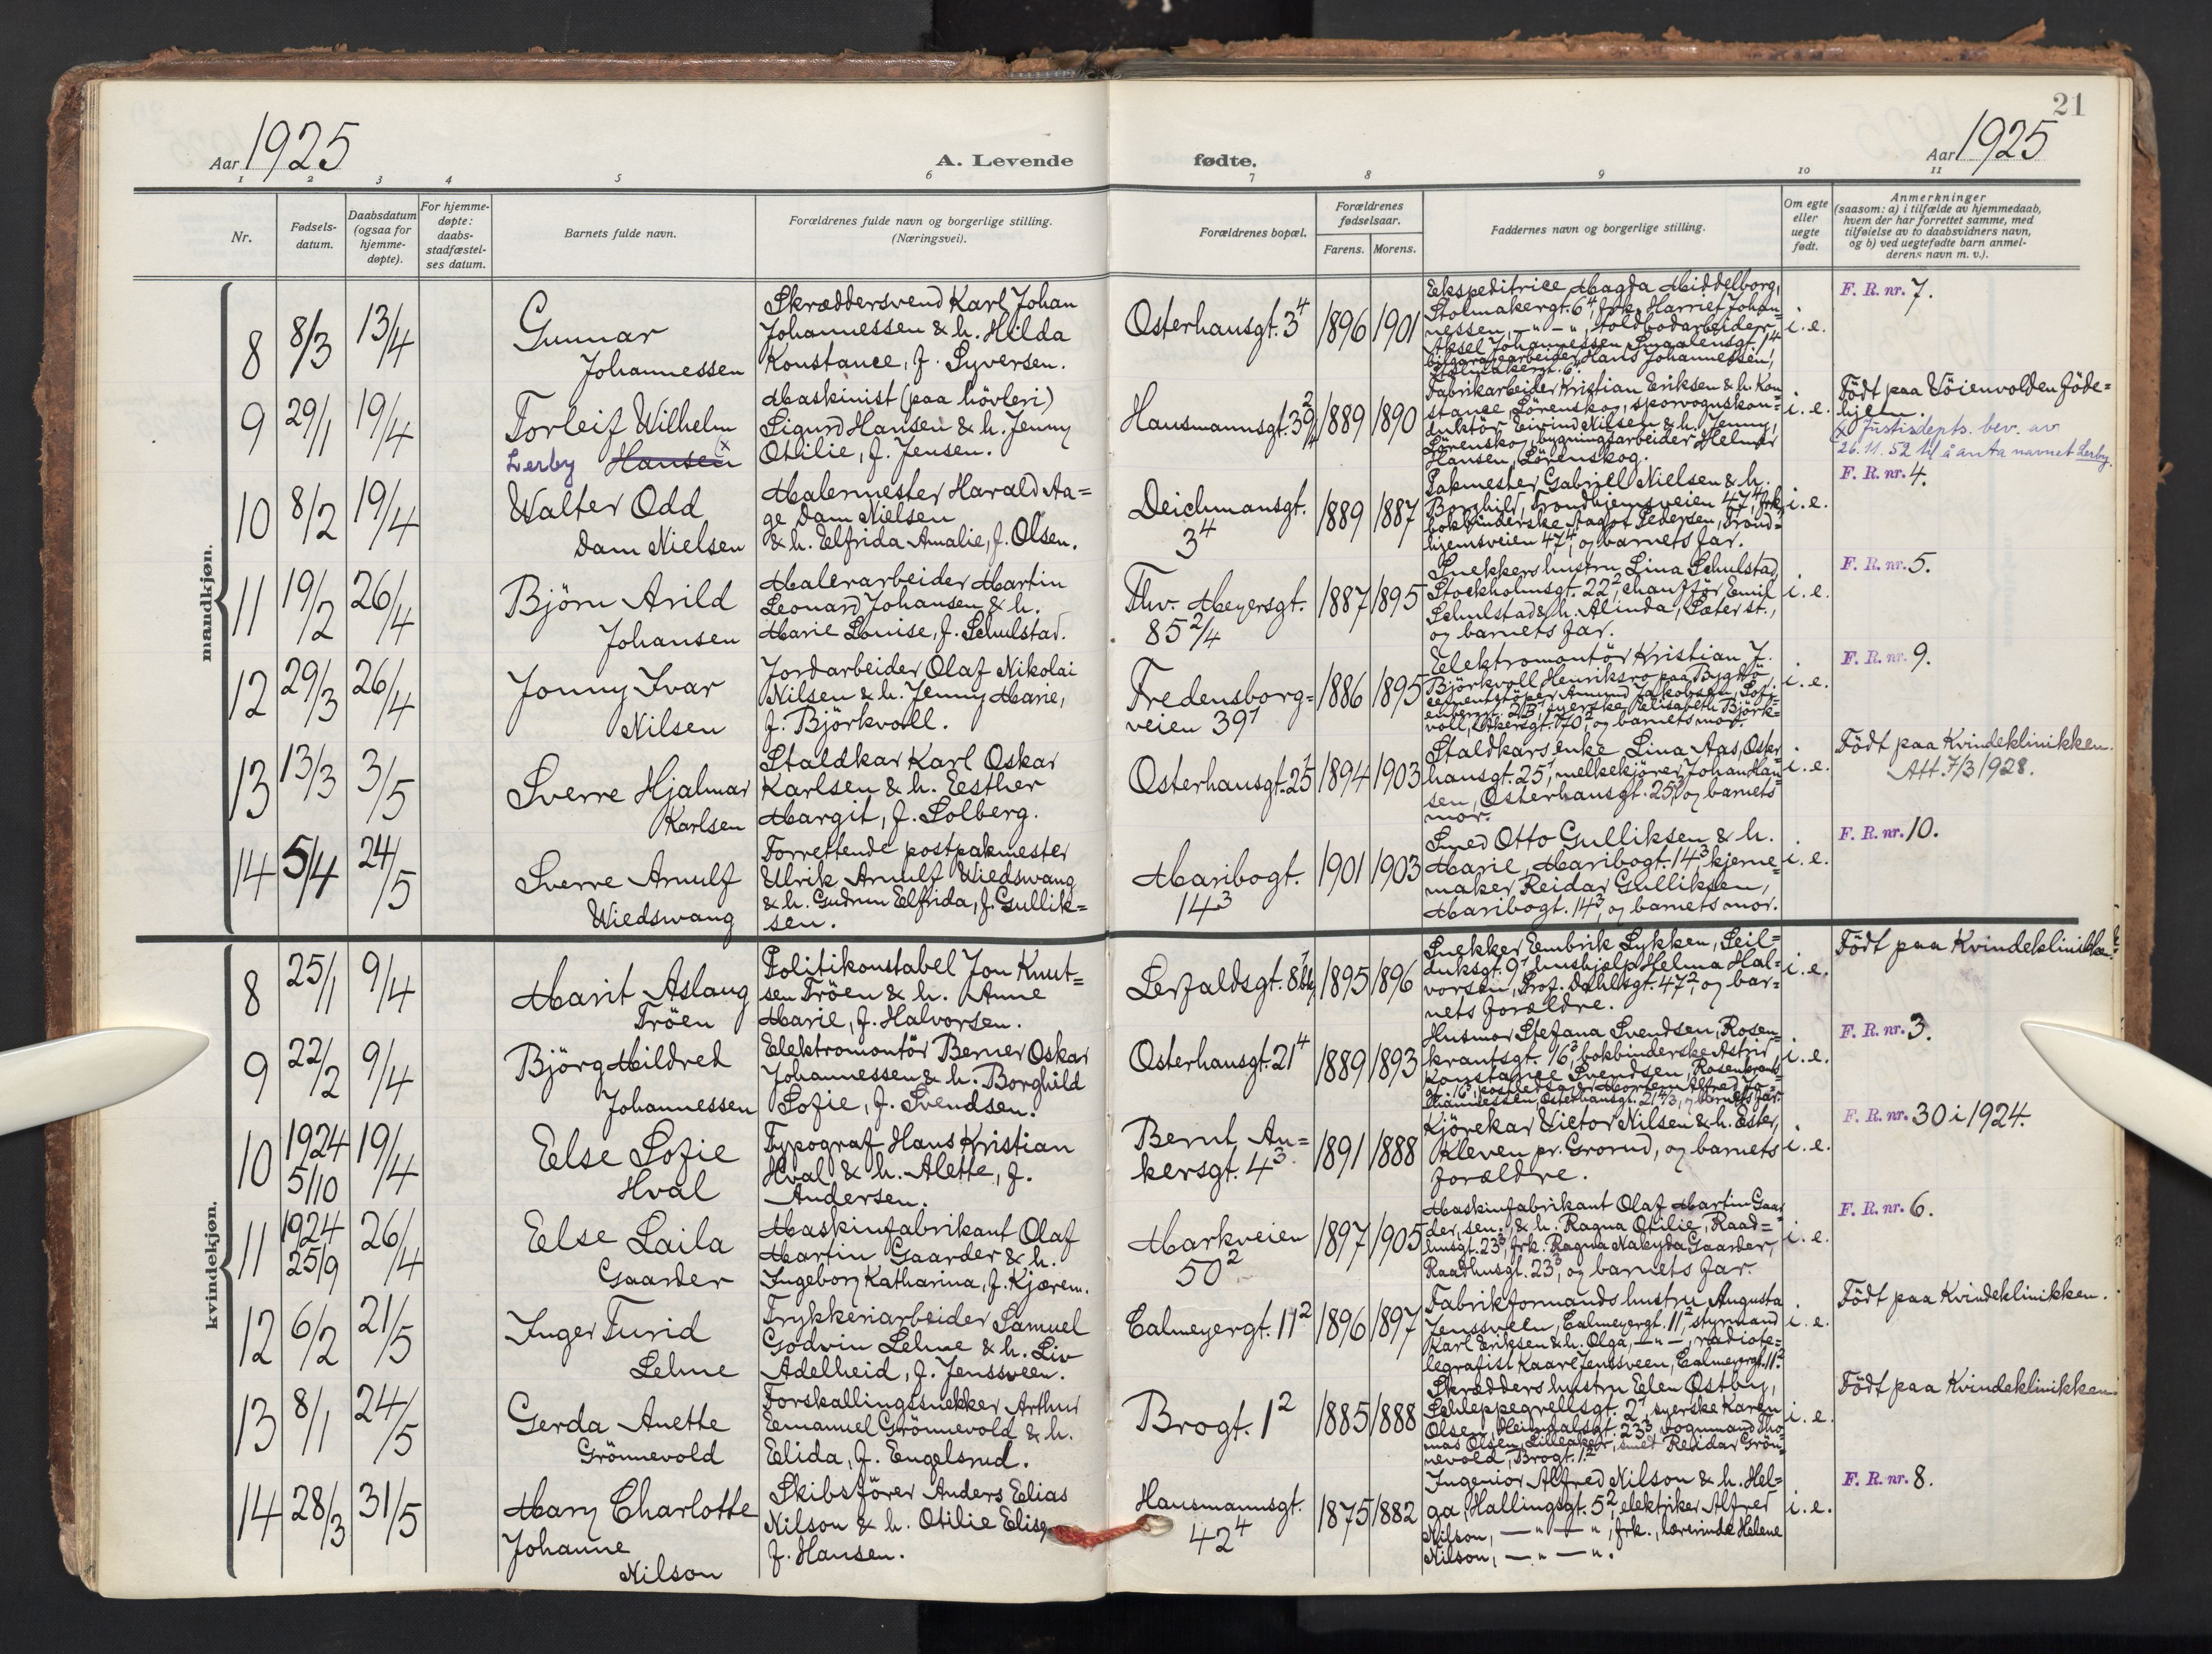 21
Aar 1925
A. Levende fødte.
Aar 1925
1 2 3 4 5 6 7 8 9 10 11
Nr.
Fødsels-
datum.
Daabsdatum
(ogsaa for
hjemme-
døpte).
For hjemme-
døpte:
daabs-
stadfæstel-
ses datum.
Barnets fulde navn.
Forældrenes fulde navn og borgerlige stilling.
(Næringsvei).
Forældrenes bopæl.
Forældrenes
fødselsaar.
Farens. Morens.
Faddernes navn og borgerlige stilling.
Om egte
eller
uegte
født.
Anmerkninger
(saasom: a) i tilfælde av hjemmedaab,
hvem der har forrettet samme, med
tilføielse av to daabsvidners navn,
og b) ved uegtefødte barn anmel-
derens navn m. v.).
mandkjøn.
8 8/3 13/4
Gunnar
Johannessen
Skræddersvend Karl Johan
Johannessen & h. Hilda
Konstance, f. Syversen.
Osterhausgt. 3 4
1896 1901
Ekspeditrice Magda Middelborg,
Stolmakergt. 6 4, frk. Harriet Johan=
nessen, —"—", toldbodarbeider
Aksel Johannessen Smaalensgt. 14
bilgaragearbeider Hans Johannessen,
Stolmakergt. 6.
i. e.
F. R. nr. 7.
9 29/1 19/4
Torleif Wilhelm
Lerby Hansen x
Maskinist (paa høvleri)
Sigurd Hansen & h. Jenny
Othilie, f. Jensen.
Hausmannsgt. 39 2/4
1889 1890
Fabrikarbeider Kristian Eriksen & h. Kon
stance, Lörenskog, sporvognskon=
duktör Eivind Nielsen & h. Jenny,
Lörenskog, bygningsarbeider Helmer
Hansen, Lörenskog.
i. e.
Född paa Töienvolden föde=
hjem.
x Justisdepts. bev. av
26.11.52 til å anta navnet Lerby.
10 8/2 19/4
Walter Odd
Dam Nielsen
Malermester Harald Aa=
ge Dam Nielsen
& h. Elfrida Amalie, f. Olsen.
Deichmansgt.
3 4
1889 1887
Pakmester Gabriel Nielsen & h.
Borghild, Trondhjemsveien 47 4, frk.
bokbinderske Aagot Pedersen, Trond=
hjemsveien 47 4, og barnets far.
i. e.
F. R. nr. 4.
11 19/2 26/4
Björn Arild
Johansen
Malerarbeider Martin
Leonard Johansen & h.
Marie Louise, f. Schulstad.
Thv. Meyersgt.
85 2/4
1887 1895
Snekkers hustru Lina Schulstad
Stockholmsgt. 22 2, chaufför Emil
Schulstad & h. Alinda, Sæter st.,
og barnets far.
i. e.
F. R. nr. 5.
12 29/3 26/4
Jonny Ivar
Nilsen
Jordarbeider Olaf Nikolai
Nilsen & h. Jenny Marie,
f. Björkvoll.
Fredensborg=
veien 39 1
1886 1895
Elektromontör Kristian J.
Björkvoll Henriksro paa Bygdö
cementstöper Amund Jakobsen, Sofi=
enberggt. 21 3, syerske Elisabeth Björk=
voll, Akersgt. 70 2, og barnets mor.
i. e.
F. R. nr. 9.
13 13/3 3/5
Sverre Hjalmar
Karlsen
Staldkar Karl Oskar
Karlsen & h. Esther
Margit, f. Solberg.
Osterhausgt. 25 1
1894 1903
Staldkars enke Lina Aas, Oster
hausgt. 25 1, melkekjörer Johan Han=
sen, Osterhausgt. 25 1, og barnets
mor.
i. e.
Född paa Kvindeklinikken.
Att. 7/3 1928.
14 5/4 24/5
Sverre Arnulf
Wiedswang
Forrettende postpakmester
Ulrik Arnulf Wiedswang
& h. Gudrun Elfrida, f. Gullik=
sen.
Maribogt.
14 3
1901 1903
Smed Otto Gulliksen & h.
Marie, Maribogt. 14 3, kjerne=
maker Reidar Gulliksen,
Maribogt. 14 3, og barnets mor.
i. e.
F. R. nr. 10.
kvindekjøn.
8 25/1 9/4
Marit Aslaug
Tröen
Politikonstabel Jon Knut=
sen Tröen & h. Anne
Marie, f. Halvorsen.
Lerfaldsgt. 8
1895 1896
Snekker Embrik Lykken, Seil=
duksgt. 9 1, hushjælp Helma Hal=
vorsen, Prof. Dahlsgt. 47 2, og bar=
nets forældre.
i. e.
Född paa Kvindeklinikken.
9 22/2 9/4
Björg Mildred
Johannessen
Elektromontör Berner Oskar
Johannessen & h. Borghild
Sofie, f. Svendsen.
Osterhausgt. 21 4
1889 1893
Husmor Stefana Svendsen, Rosen=
krantsgt. 16 3, bokbinderske Astrid
Konstance Svendsen, Rosenkrants=
Johannessen, Osterhausgt. 21 4/3, og barnets far.
i. e.
F. R. nr. 3.
10 1924 5/10 19/4
Else Sofie
Hval
Typograf Hans Kristian
Hval & h. Alette, f.
Andersen.
Bernt An=
kersgt. 4 3.
1891 1888
Kjörekar Victor Nilsen & h. Ester,
Kleven pr. Grorud, og barnets
forældre.
i. e.
F. R. nr. 30 i 1924.
11 1924 25/9 26/4
Else Laila
Gaarder
Maskinfabrikant Olaf
Martin Gaarder & h.
Ingeborg Katharina, f. Kjærem.
Markveien
50 2
1897 1905
Maskinfabrikant Olaf Martin Gaar
der, sen. & h. Ragna Otilie, Raad=
husgt. 23 3, frk. Ragna Nakyda Gaarder,
Raadhusgt. 23 3, og barnets far.
i. e.
F. R. nr. 6.
12 6/2 21/5
Inger Turid
Lehne
Trykkeriarbeider Samuel
Godvin Lehne & h. Liv
Adelheid, f. Jenssveen.
Calmeyergt. 11 2
1896 1897
Fabrikformands hustru Augusta
Jenssveen, Calmeyergt. 11 2, styrmand
Karl Eriksen & h. Olga, —"—, radiote=
legrafist Kaare Jenssveen, Calmeyergt. 11 2.
i. e.
Född paa Kvindeklinikken.
13 8/1 24/5
Gerda Anette
Grönnevold
Forskallingssnekker Arthur
Emanuel Grönnevold & h.
Elida, f. Engelsrud.
Brogt. 1 2
1885 1888
Skrædders hustru Elen Östby,
Schleppegrellsgt. 2 1, syerske Karen
Olsen, Heimdalsgt. 23 3, vognmand Tho=
mas Olsen, Lilleaker, smed Reidar Grön=
nevold, Brogt. 1 2
i. e.
Född paa Kvindeklinikken.
14 28/3 31/5
Mary Charlotte
Johanne
Nilson
Skibsförer Anders Elias
Nilson & h. Otilie Elise,
f. Hansen.
Hausmannsgt.
42 4
1875 1882
Ingeniör Alfred Nilson & h. Hel=
ga, Hallingsgt. 5 2, elektriker Alfred
Nilson, —"—", frk., lærerinde Helene
Nilson, —"—".
i. e.
F. R. nr. 8.